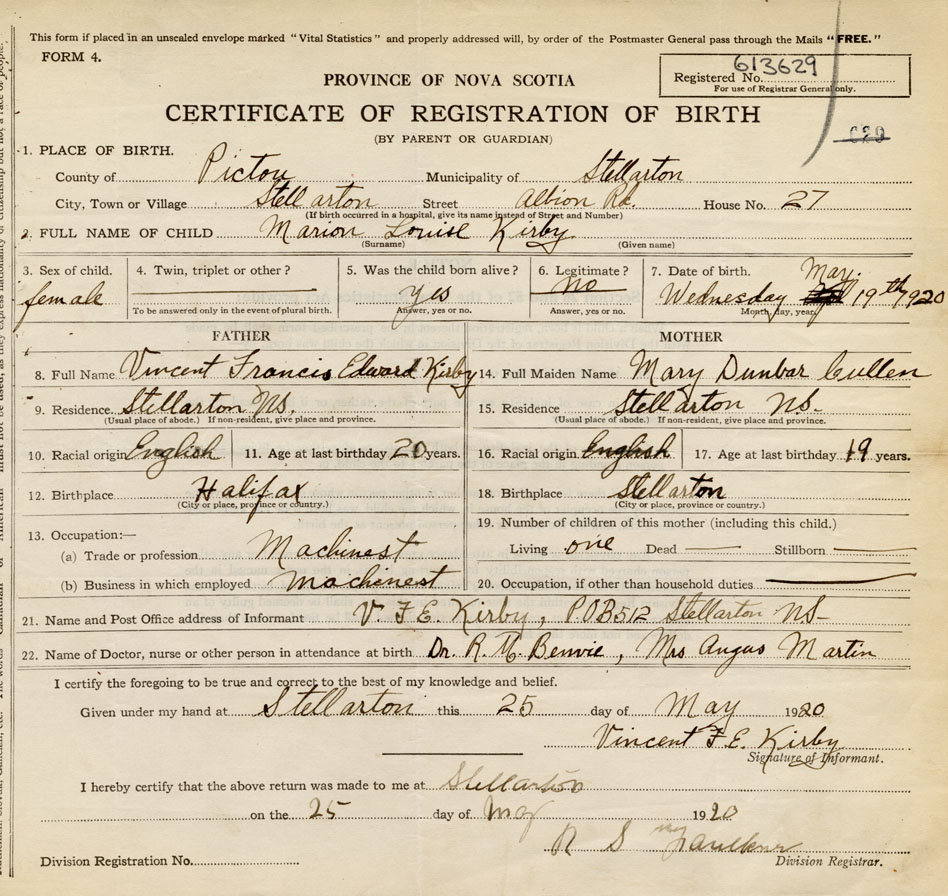 This form if placed in an unsealed envelope marked "Vital Statistics" and properly addressed will, by order of the Postmaster General pass through the Mails "FREE."
FORM 4.
613629
Registered No.
For use of Registrar General only.
PROVINCE OF NOVA SCOTIA
CERTIFICATE OF REGISTRATION OF BIRTH
(BY PARENT OR GUARDIAN)
1. PLACE OF BIRTH.
County of Pictou Municipality of Stellarton
City, Town or Village Stellarton Street Albion Rd. House No. 27
(If birth occurred in a hospital, give its name instead of Street and Number)
2. FULL NAME OF CHILD Marion Louise Kirby
(Surname) (Given name)
3. Sex of child. 4. Twin, triplet or other? 5. Was the child born alive? 6. Legitimate? 7. Date of birth.
female yes no Wednesday May 19th, 1920
To be answered only in the event of plural birth. Answer, yes or no. Answer, yes or no. Month, day, year.
FATHER MOTHER
8. Full Name Vincent Francis Edward Kirby 14. Full Maiden Name Mary Dunbar Cullen
9. Residence. Stellarton NS. 15. Residence. Stellarton NS.
(Usual place of abode.) If non-resident, give place and province. (Usual place of abode.) If non-resident, give place and province.
10. Racial origin English 11. Age at last birthday 20 years. 16. Racial origin English 17. Age at last birthday 19 years.
12. Birthplace Halifax 18. Birthplace Stellarton
(City or place, province or country.) (City or place, province or country.)
13. Occupation:— 19. Number of children of this mother (including this child.)
(a) Trade or profession Machinest Living one Dead — Stillborn —
(b) Business in which employed Machinest 20. Occupation, if other than household duties. —
21. Name and Post Office address of Informant V. F. E. Kirby, P.O.B 512 Stellarton NS-
22. Name of Doctor, nurse or other person in attendance at birth Dr. R. M. Benvie, Mrs Angus Martin
I certify the foregoing to be true and correct to the best of my knowledge and belief.
Given under my hand at Stellarton this 25 day of May 1920
Vincent F. E. Kirby
Signature of Informant.
I hereby certify that the above return was made to me at Stellarton
on the 25 day of May 1920
Division Registration No.
Division Registrar.